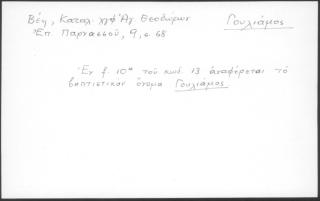 Βέη, Καταλ. χγφ Ἁγ. Θεοδώρων Γουλιάμος
Ἐπ. Παρνασσοῦ, 9, σ. 68
Ἐν f. 10α τοῦ κωδ. 13 ἀναφέρεται τὸ
βαπτιστικὸν ὄνομα Γουλιάμος